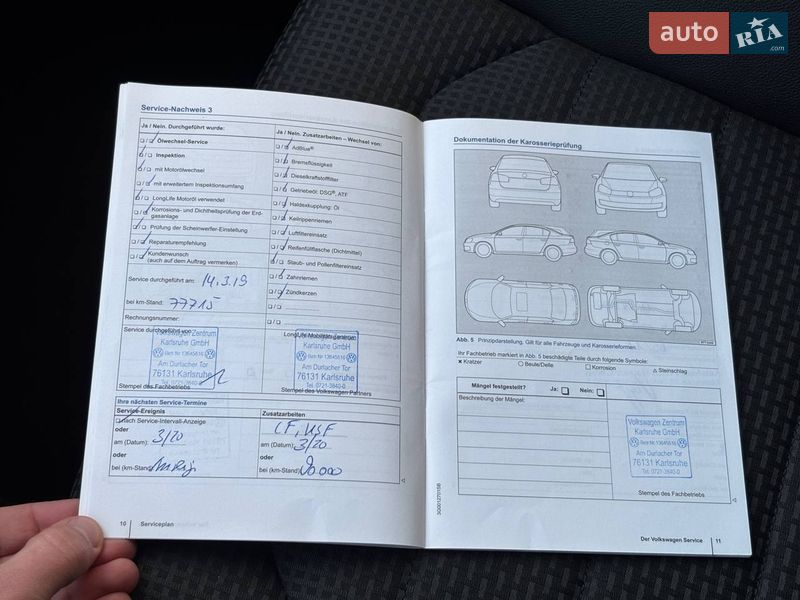 auto RIA .com
Service-Nachweis 3
Ja / Nein. Durchgeführt wurde:
Ölwechsel-Service
Inspektion
mit Motorölwechsel
mit erweitertem Inspektionsumfang
LongLife Motoröl verwendet
Korrosions- und Dichtheitsprüfung der Erd-
gasanlage
Prüfung der Scheinwerfer-Einstellung
Reparaturempfehlung
Kundenwunsch
(auch auf dem Auftrag vermerken)
Service durchgeführt am: 14.3.19
bei km-Stand: 77715
Rechnungsnummer:
Service durchgeführt von:
Volkswagen Zentrum
Karlsruhe GmbH
Am Durlacher Tor
76131 Karlsruhe
Tel. 0721-3840-0
Stempel des Fachbetriebs
Ja / Nein. Zusatzarbeiten – Wechsel von:
AdBlue®
Bremsflüssigkeit
Dieselkraftstofffilter
Getriebeöl: DSG®, ATF
Haldexkupplung: Öl
Keilrippenriemen
Luftfiltereinsatz
Reifenfüllflasche (Dichtmittel)
Staub- und Pollenfiltereinsatz
Zahnriemen
Zündkerzen
LongLife Mobilitätsgarantie:
Volkswagen Zentrum
Karlsruhe GmbH
Am Durlacher Tor
76131 Karlsruhe
Tel. 0721-3840-0
Stempel des Volkswagen Partners
Ihre nächsten Service-Termine
Service-Ereignis
nach Service-Intervall-Anzeige
oder
am (Datum): 3/20
oder
bei (km-Stand)
Zusatzarbeiten
am (Datum): 3/20
oder
bei (km-Stand) 90.000
10 Serviceplan
Dokumentation der Karosserieprüfung
Abb. 5 Prinzipdarstellung. Gilt für alle Fahrzeuge und Karosserieformen.
Ihr Fachbetrieb markiert in Abb. 5 beschädigte Teile durch folgende Symbole:
× Kratzer ○ Beule/Delle □ Korrosion △ Steinschlag
Mängel festgestellt? Ja: Nein:
Beschreibung der Mängel:
Volkswagen Zentrum
Karlsruhe GmbH
Betr.Nr. 13645616
Am Durlacher Tor
76131 Karlsruhe
Tel. 0721-3840-0
Stempel des Fachbetriebs
3G0012701SB
Der Volkswagen Service 11